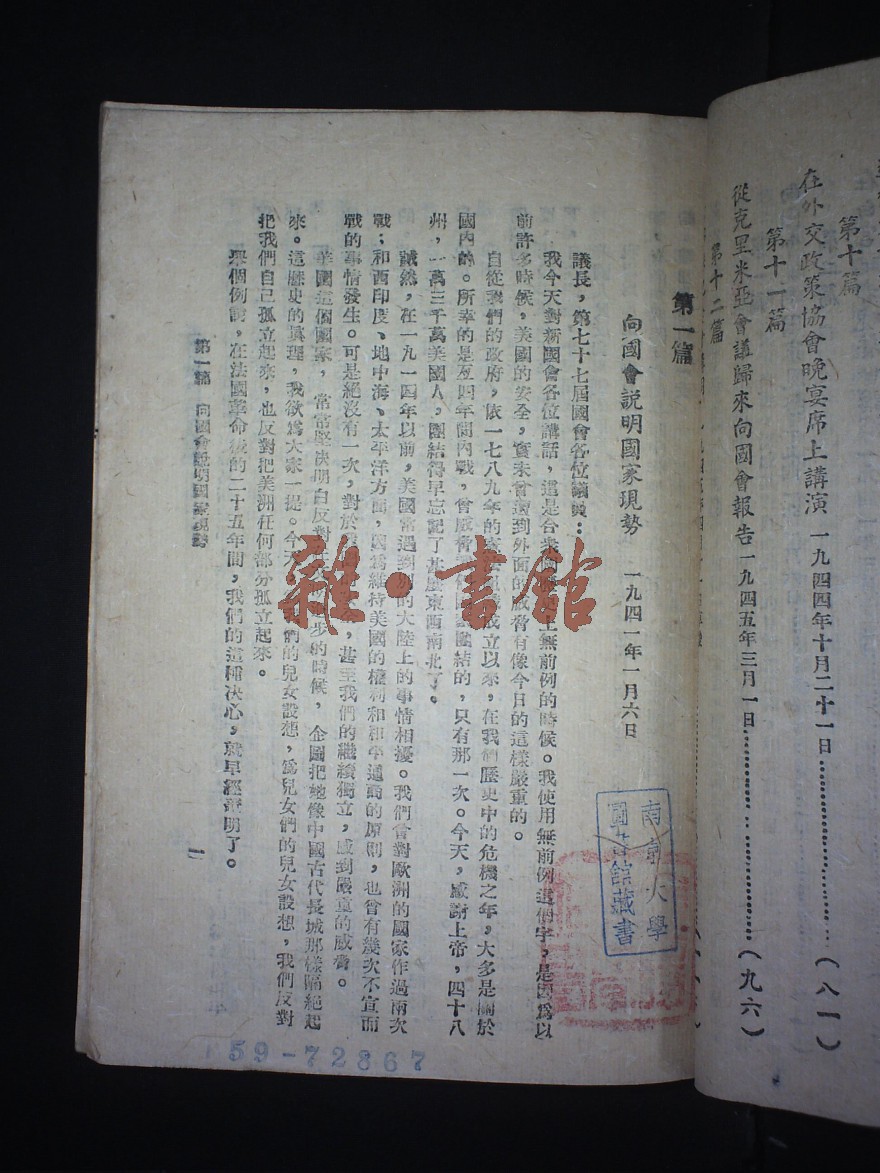 第十篇
在外交政策協會晚宴席上講演 一九四四年十月二十一日……………(八一)
第十一篇
從克里米亞會議歸來向國會報告 一九四五年三月一日……………(九六)
第十二篇
第一篇
向國會説明國家現勢 一九四一年一月六日
議長,第七十七屆國會各位議員:
我今天對新國會各位講話,這是合衆國 上無前例的時候。我使用無前例這個字,是因爲以
前許多時候,美國的安全,實未曾遇到外面的威脅有像今日的這樣嚴重的。
自從我們的政府,依一七八九年的 成立以來,在我們歷史中的危機之年,大多是關於
國內的。所幸的是互四年間內戰,曾威脅 團結的,只有那一次。今天,感謝上帝,四十八
州,一萬三千萬美國人,團結得早忘記了甚麽東西南北了。
誠然,在一九一四年以前,美國常遇到別的大陸上的事情相擾。我們曾對歐洲的國家作過兩次
戰;和西印度、地中海、太平洋方面,因爲維持美國的權利和和平通商的原則,也曾有幾次不宣而
戰的事情發生。可是絕沒有一次,對於 ,甚至我們的繼續獨立,感到嚴重的威脅。
美國這個國家,常常堅決明白反對 步的時候,企圖把她像中國古代長城那樣隔絕起
來。這歷史的真理,我欲爲大家一提。今天 們的兒女設想,爲兒女們的兒女設想,我們反對
把我們自己孤立起來,也反對把美洲任何部分孤立起來。
舉個例說,在法國革命後的二十五年間,我們的這種決心,就早經證明了。
第一篇 向國會説明國家現勢
一
南京大學
圖書館藏書
雜·書館
59-72867